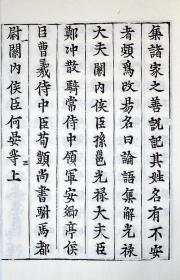 集諸家之善說記其姓名有不安
者頗爲改易名曰論語集解光祿
大夫關內侯臣孫邕光祿大夫臣
鄭沖散騎常侍中領軍安鄉亭侯
臣曹羲侍中臣荀顗尚書駙馬都
尉關內侯臣何晏等上